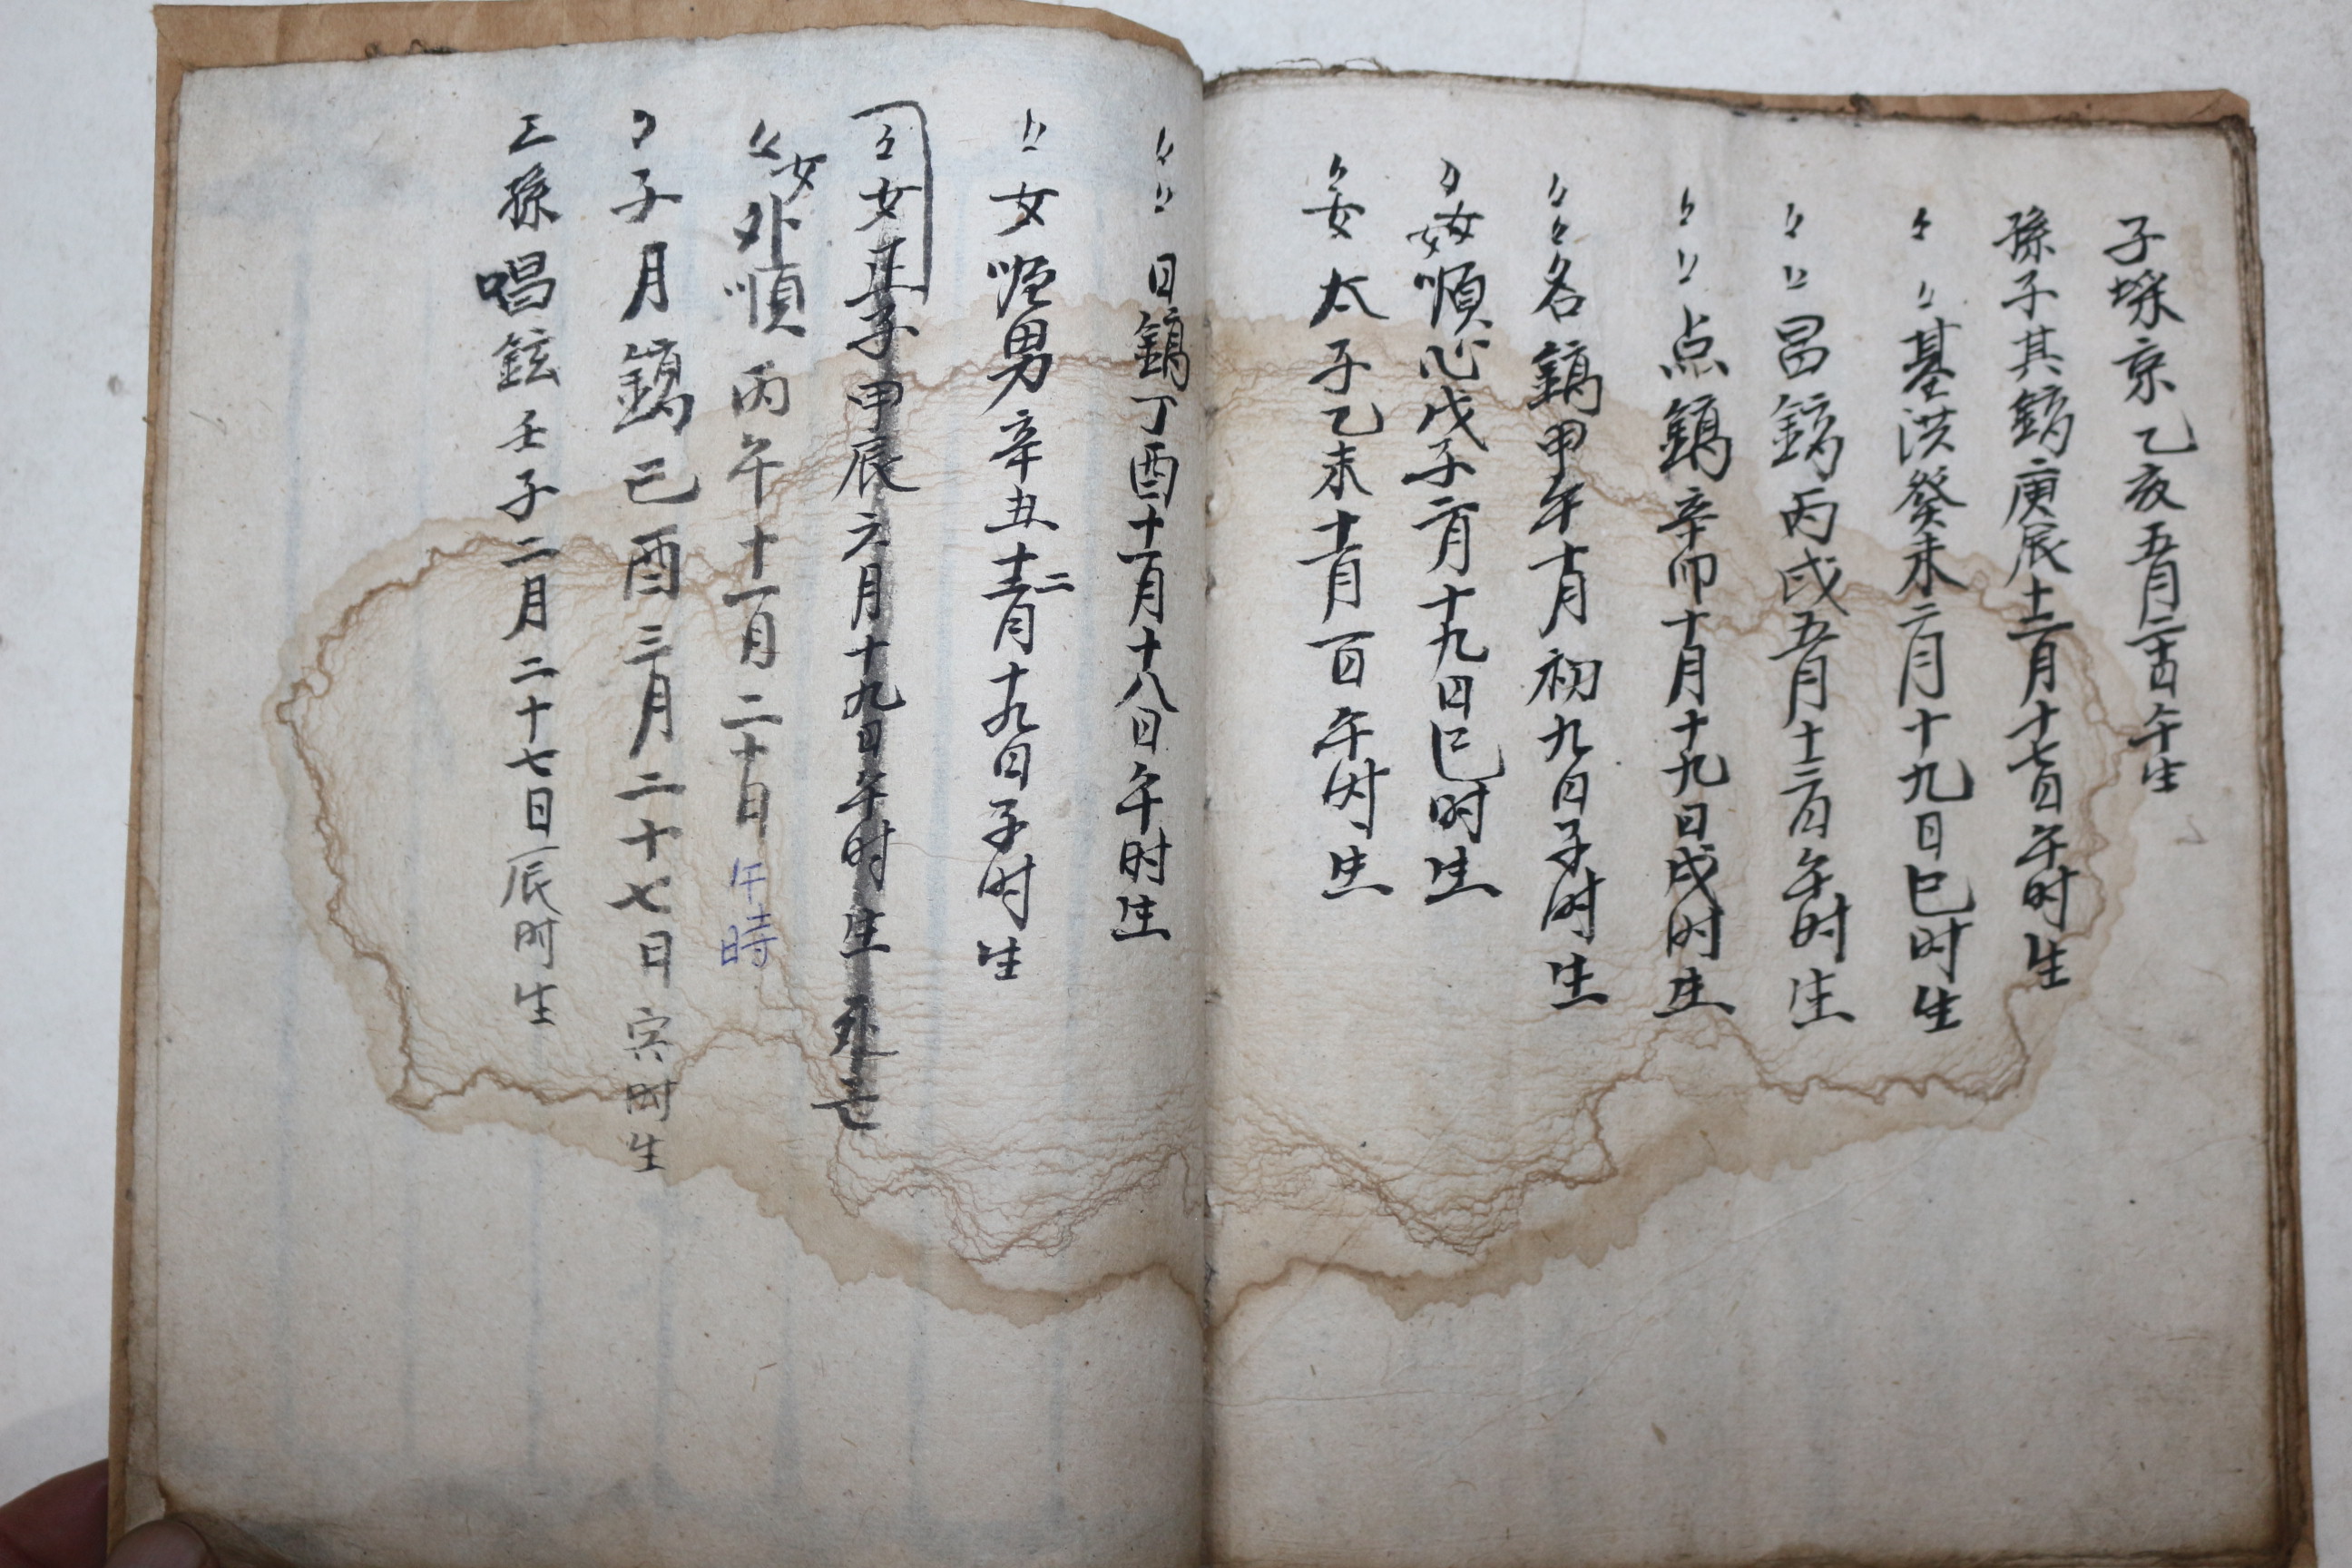 子埰京乙亥五月二十四日午生
孫子其鎬庚辰十二月十七日午时生
〃〃基洪癸未二月十九日巳时生
〃〃昌鎬丙戌五月十二日午时生
〃〃点鎬辛卯十月十九日戌时生
〃〃各鎬甲午十月初九日子时生
〃女順心戊子二月十九日巳时生
〃女太子乙未十一月一日午时生
〃〃日鎬丁酉十一月十八日午时生
〃女順男辛丑十二月十九日子时生
〃女正子甲辰六月十九日午时生死亡
〃女外順丙午十一月二十日午時
〃子月鎬己酉三月二十七日寅时生
三孫唱鉉壬子二月二十七日辰时生